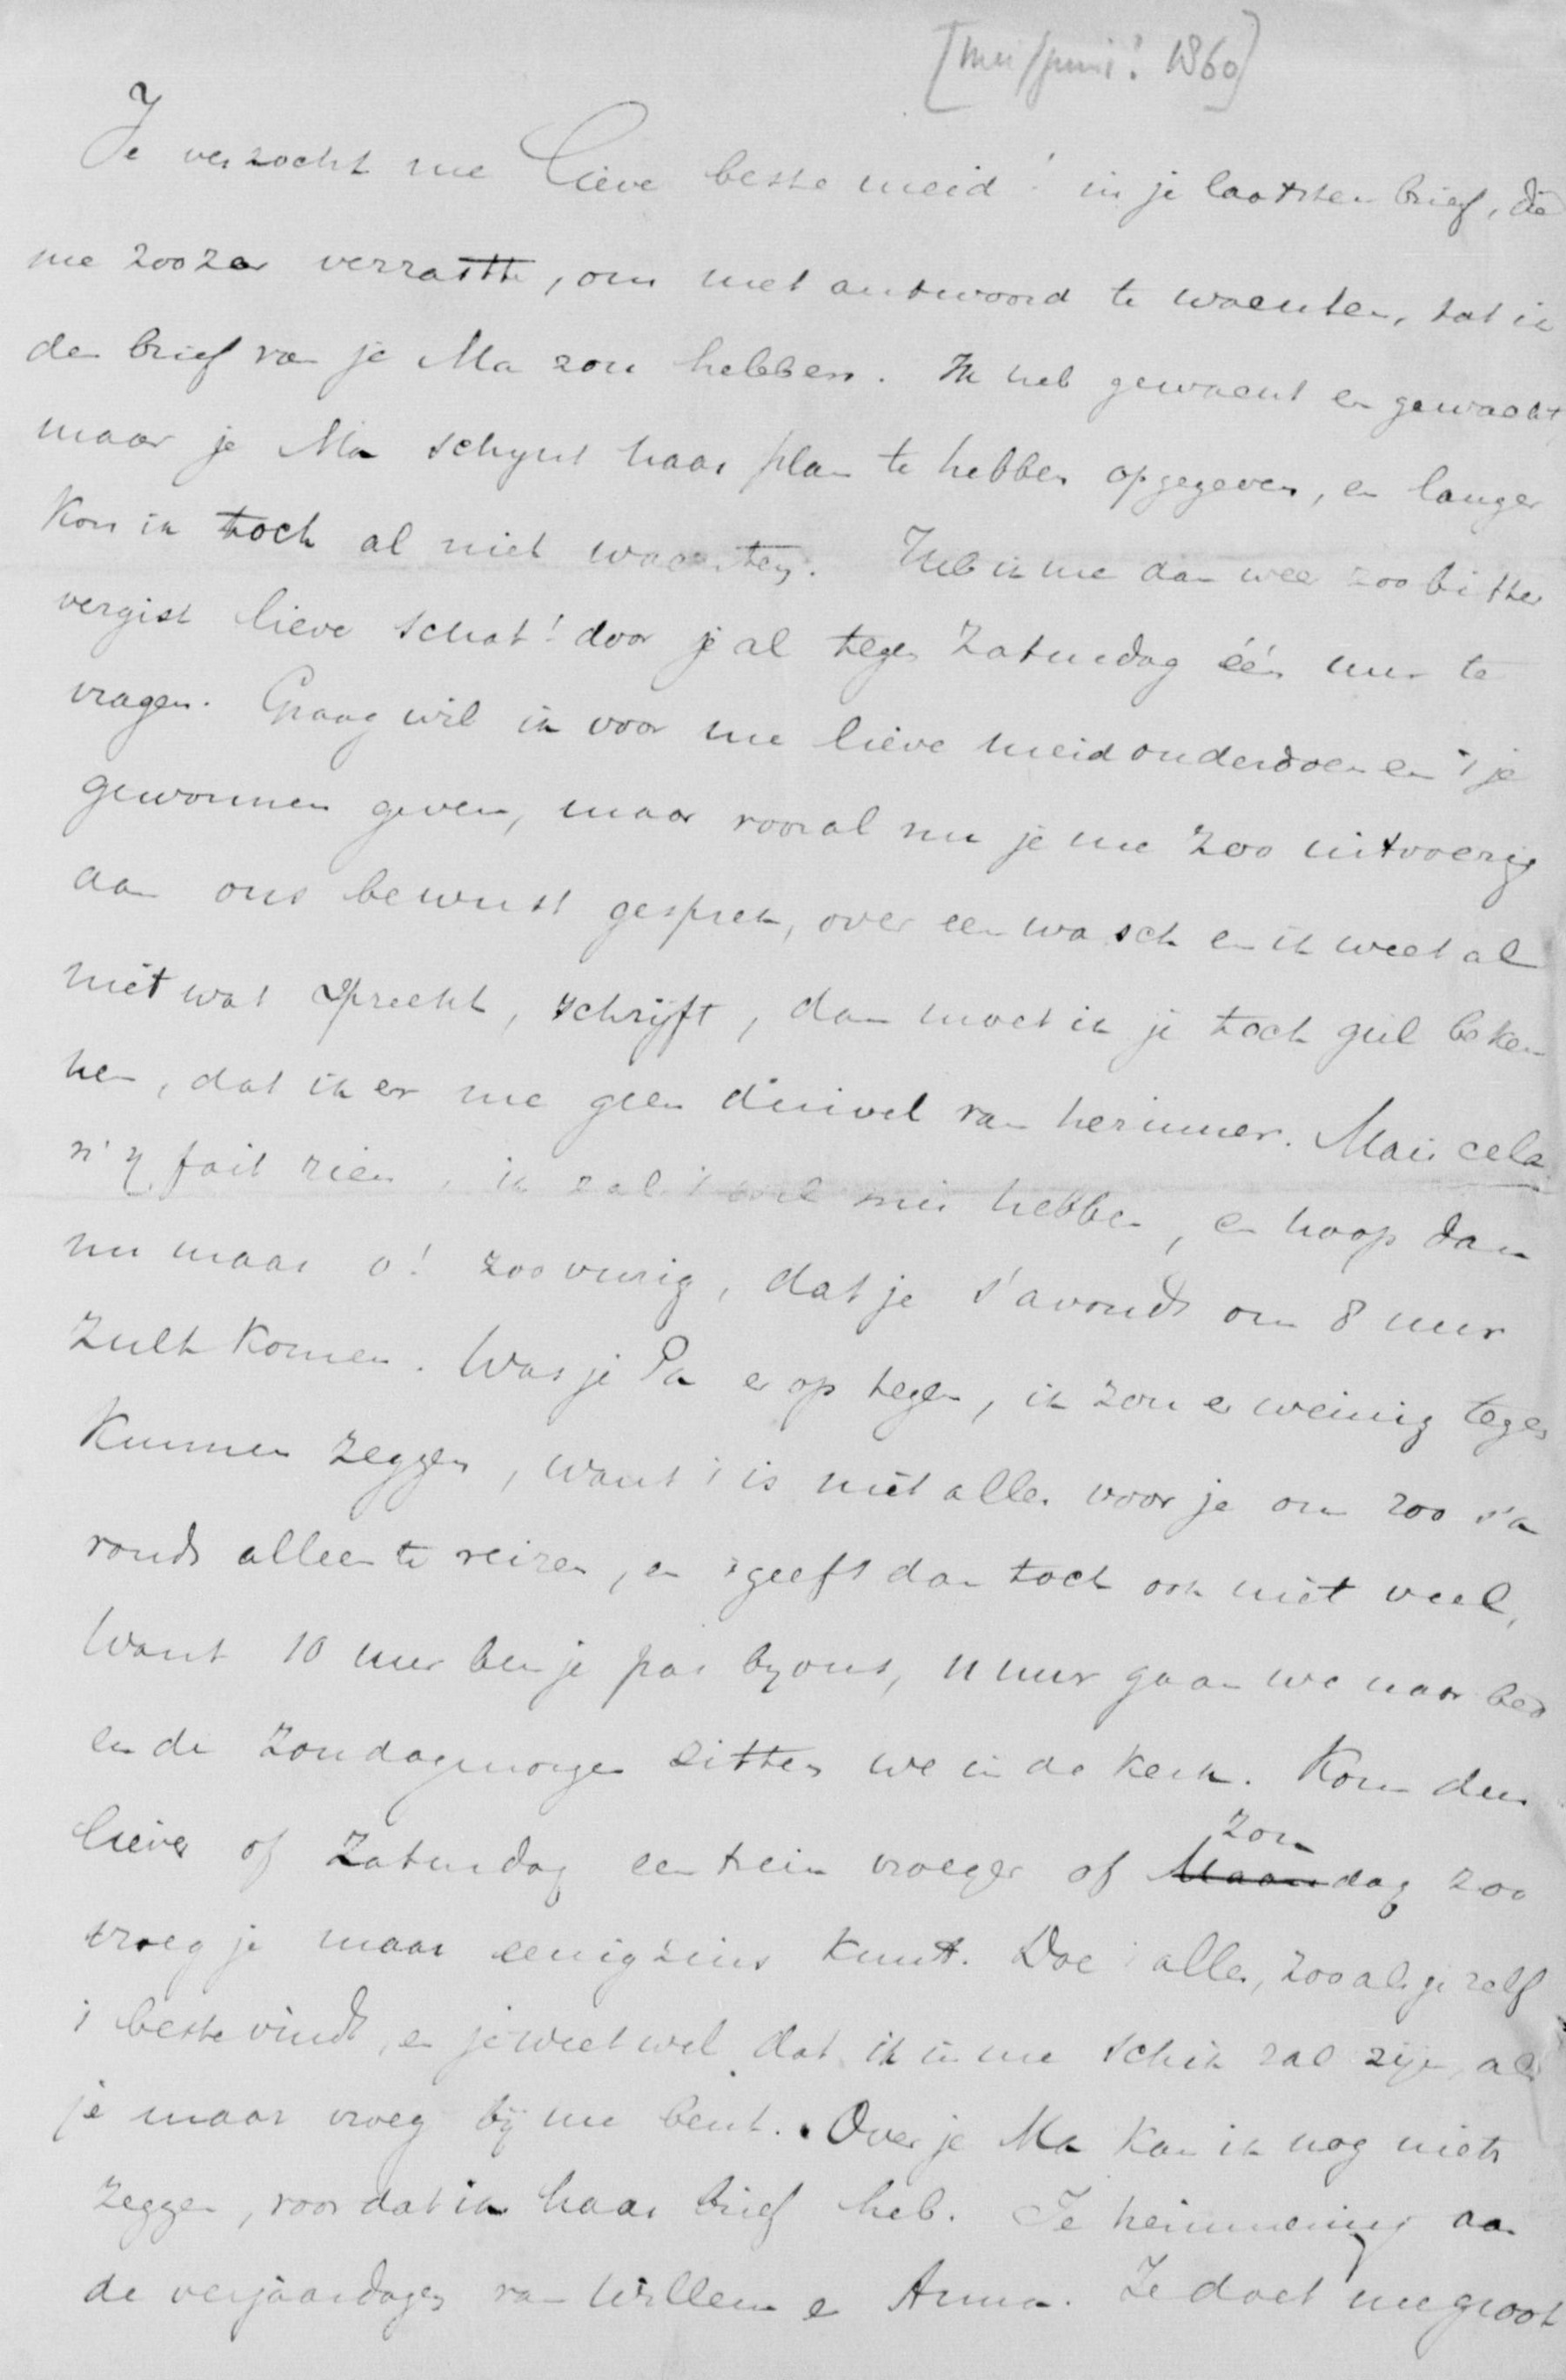 [mei/juni? 1860]
Je verzocht me lieve beste meid! in je laatsten brief, die
me zoozeer verrastte, om met antwoord te wachten, tot ik
den brief van je Ma zou hebben. Ik heb gewacht en gewacht,
maar je Ma schynt haar plan te hebben opgegeven, en langer
kon ik toch al niet wachten. Heb ik me dan weer zoo bitter
vergist lieve schat! door je al tegen Zaturdag één uur te
vragen. Graag wil ik voor me lieve meid onderdoen en 't je
gewonnen geven, maar vooral nu je me zoo uitvoerig
aan ons bewust gesprek, over een wasch en ik weet al
niet wat spreekt, schrijft, dan moet ik je toch guil beken
nen, dat ik er me geen duivel van herinner. Mais cela
n'y fait rien, ik zal 't wel mis hebben, en hoop dan
nu maar o! zoo vurig, dat je s'avonds om 8 uur
zult komen. Was je Pa er op tegen, ik zou er weinig tegen
kunnen zeggen, want 't is niet alles voor je om zoo s'a
vonds alleen te reizen, en 't geeft dan toch ook niet veel,
want 10 uur ben je pas by ons, 11 uur gaan we naar bed
en de Zondagmorgen zitten we in de kerk. Kom dus
liever of Zaturdag een trein vroeger of Maandag zoo
Zon
vroeg je maar eenigzins kunt. Doe 't alles, zooals je zelf
't beste vindt, en je weet wel dat ik in me schik zal zijn, als
je maar vroeg bij me bent. Over je Ma kan ik nog niets
zeggen, voordat ik haar brief heb. Je herinnering aan
de verjaardagen van Willem en Anna. Ze doet me groot